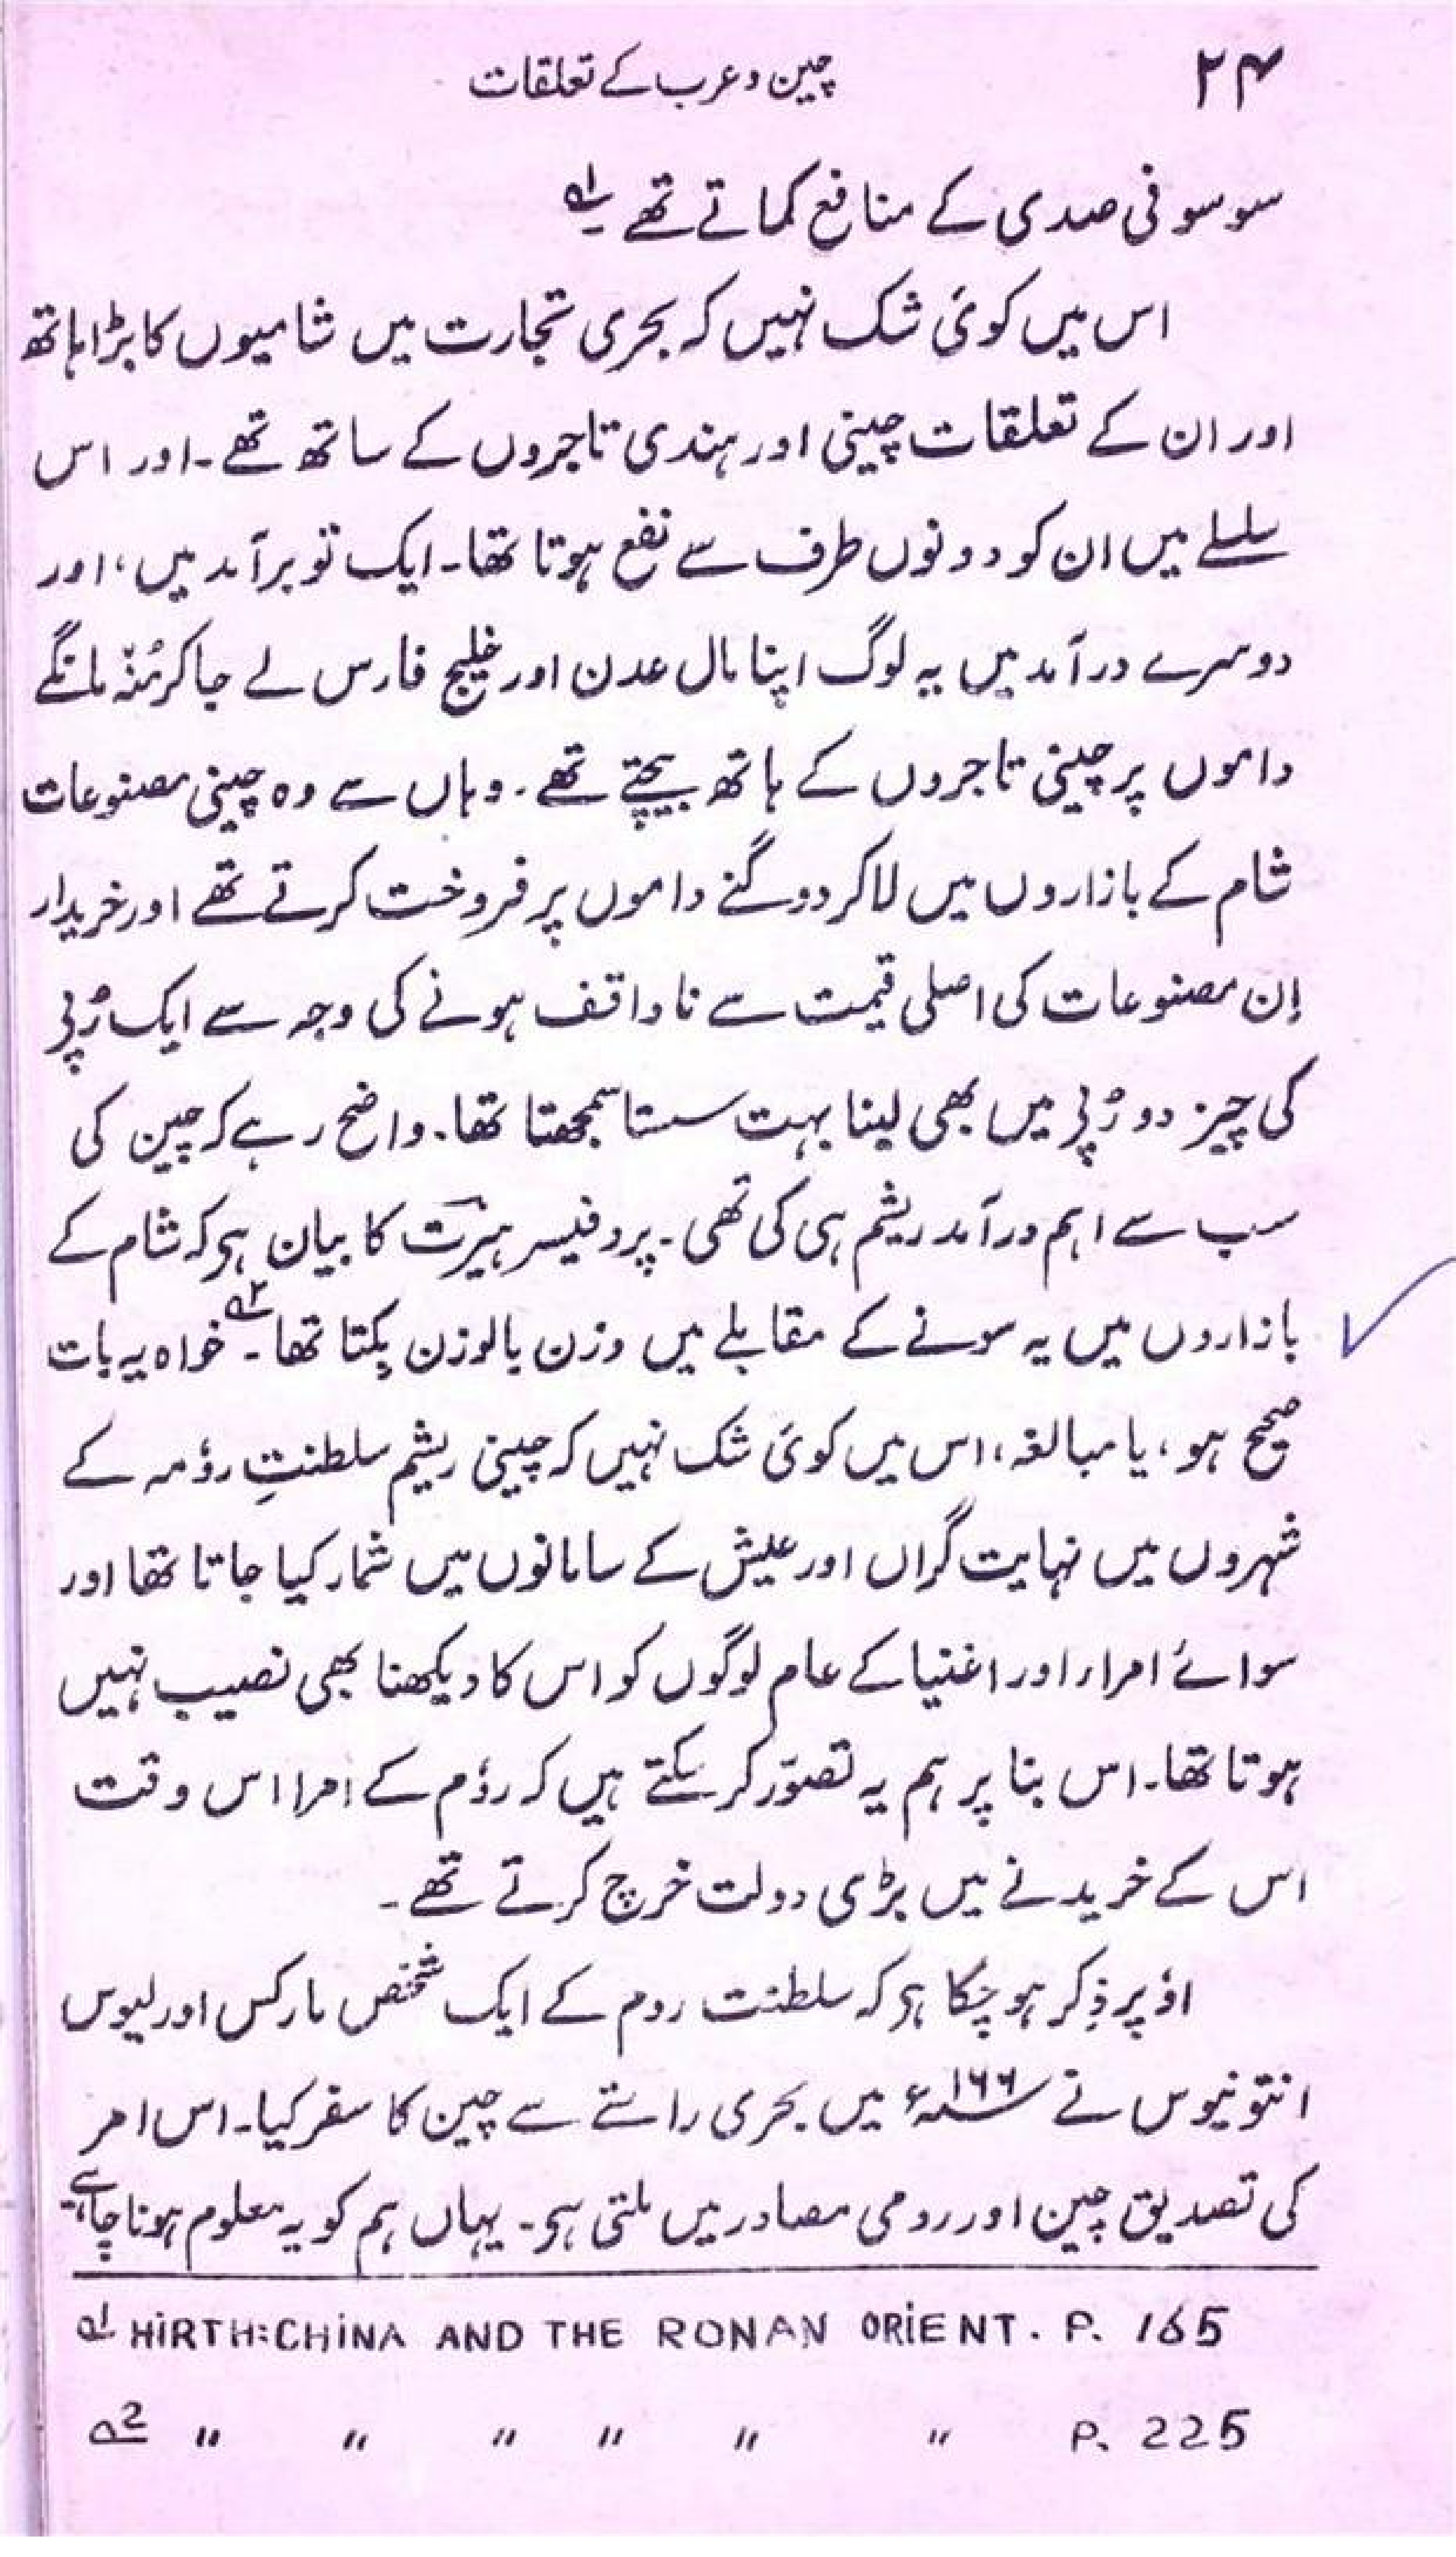 ۲۴
چین و عرب کے تعلقات
سو سو فی صدی کے منافع کماتے تھے ۔ ؎۱
اس میں کوئی شک نہیں کہ بحری تجارت میں شامیوں کا بڑا ہاتھ
اور ان کے تعلقات چینی اور ہندی تاجروں کے ساتھ تھے۔ اور اس
سلسلے میں ان کو دونوں طرف سے نفع ہوتا تھا۔ ایک تو برآمد میں، اور
دوسرے درآمد میں یہ لوگ اپنا مال عدن اور خلیج فارس لے جا کر مُنہ مانگے
داموں پر چینی تاجروں کے ہاتھ بیچتے تھے۔ وہاں سے وہ چینی مصنوعات
شام کے بازاروں میں لا کر دوگنے داموں پر فروخت کرتے تھے اور خریدار
اِن مصنوعات کی اصلی قیمت سے ناواقف ہونے کی وجہ سے ایک رُپی
کی چیز دو رُپی میں بھی لینا بہت سستا سمجھتا تھا۔ واضح رہے کہ چین کی
سب سے اہم درآمد ریشم ہی کی تھی۔ پروفیسر ہیرت کا بیان ہی کہ شام کے
بازاروں میں یہ سونے کے مقابلے میں وزن بالوزن بِکتا تھا۔ ؎۲ خواہ یہ بات
صحیح ہو، یا مبالغہ، اس میں کوئی شک نہیں کہ چینی ریشم سلطنتِ رؤمہ کے
شہروں میں نہایت گراں اور عیش کے سامانوں میں شمار کیا جاتا تھا اور
سوائے امراء اور اغنیا کے عام لوگوں کو اس کا دیکھنا بھی نصیب نہیں
ہوتا تھا۔ اس بنا پر ہم یہ تصوّر کر سکتے ہیں کہ رؤم کے امرا اس وقت
اس کے خریدنے میں بڑی دولت خرچ کرتے تھے۔
اؤپر ذِکر ہو چکا ہی کہ سلطنت روم کے ایک شخص مارکس اورلیوس
انتونیوس نے ۱۶۶ء میں بحری راستے سے چین کا سفر کیا۔ اس امر
کی تصدیق چین اور رومی مصادر میں ملتی ہی۔ یہاں ہم کو یہ معلوم ہونا چاہیے
؎۱ HiRTH:CHiNA AND THE RONAN ORiENT. P. 165
؎2 " " " " " " P. 225